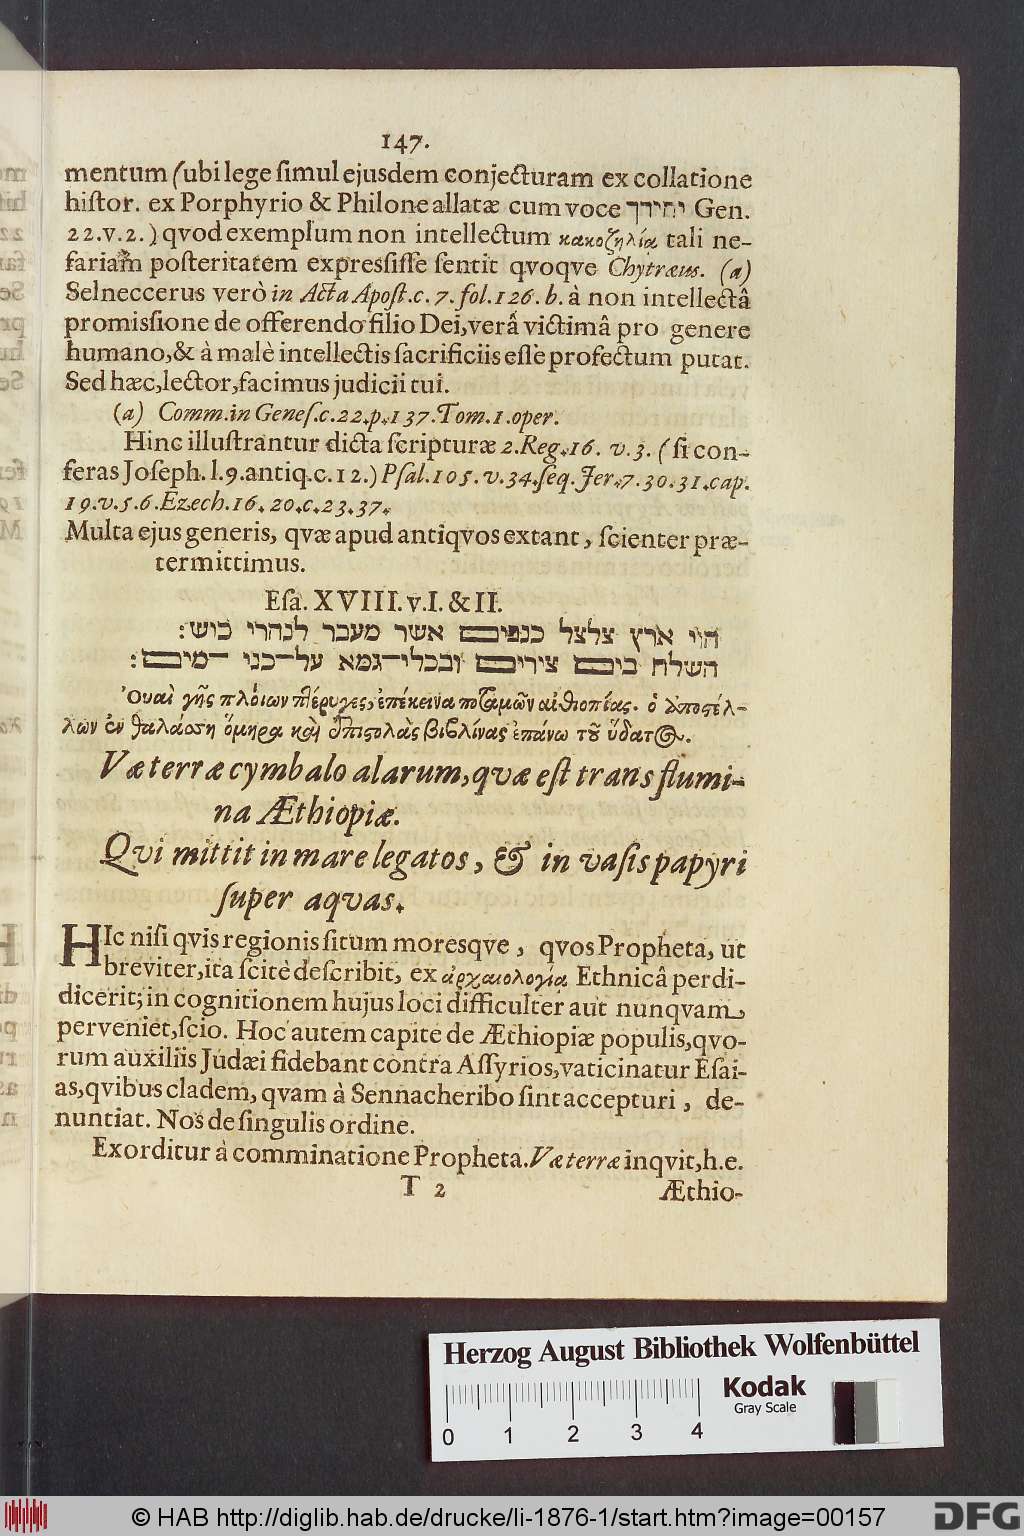 147.
mentum (ubi lege ſimul ejusdem conjecturam ex collatione
hiſtor. ex Porphyrio & Philone allatæ cum voce יחידך Gen.
22.v.2.) qvod exemplum non intellectum κακοζηλίᾳ tali ne-
fariam poſteritatem expreſsiſſe ſentit qvoqve Chytræus. (a)
Selneccerus verò in Acta Apoſt.c.7.fol.126.b. à non intellectâ
promiſsione de offerendo filio Dei, verâ victimâ pro genere
humano, & à malè intellectis ſacrificiis eſſe profectum putat.
Sed hæc, lector, facimus judicii tui.
(a) Comm.in Geneſ.c.22.p.137.Tom.1.oper.
Hinc illuſtrantur dicta ſcripturæ 2.Reg.16. v.3. (ſi con-
feras Joſeph.l.9.antiq.c.12.) Pſal.105.v.34.ſeq.Jer.7.30.31.cap.
19.v.5.6.Ezech.16.20.c.23.37.
Multa ejus generis, qvæ apud antiqvos extant, ſcienter præ-
termittimus.
Eſa. XVIII. v.I. & II.
הוי ארץ צלצל כנפים אשר מעבר לנהרי כוש:
השלח בים צירים ובכלי־גמא על־פני ־מים:
Ὀυαὶ γῆς πλοίων πτέρυγες, ἐπέκεινα ποταμῶν αἰθιοπίας. ὁ ἀποστέλ-
λων ἐν θαλάσσῃ ὅμηρα καὶ ἐπιστολὰς βιβλίνας ἐπάνω τοῦ ὕδατος.
Væ terræ cymbalo alarum, qvæ eſt trans flumi-
na Æthiopiæ.
Qvi mittit in mare legatos, & in vaſis papyri
ſuper aqvas.
HIc niſi qvis regionis ſitum moresqve, qvos Propheta, ut
breviter, ita ſcitè deſcribit, ex ἀρχαιολογίᾳ Ethnicâ perdi-
dicerit; in cognitionem hujus loci difficulter aut nunqvam
perveniet, ſcio. Hoc autem capite de Æthiopiæ populis, qvo-
rum auxiliis Judæi fidebant contra Aſſyrios, vaticinatur Eſai-
as, qvibus cladem, qvam à Sennacheribo ſint accepturi, de-
nuntiat. Nos de ſingulis ordine.
Exorditur à comminatione Propheta. Væ terræ inqvit, h.e.
T 2
Æthio-
Herzog August Bibliothek Wolfenbüttel
Kodak
Gray Scale
0 1 2 3 4
© HAB http://diglib.hab.de/drucke/li-1876-1/start.htm?image=00157
DFG